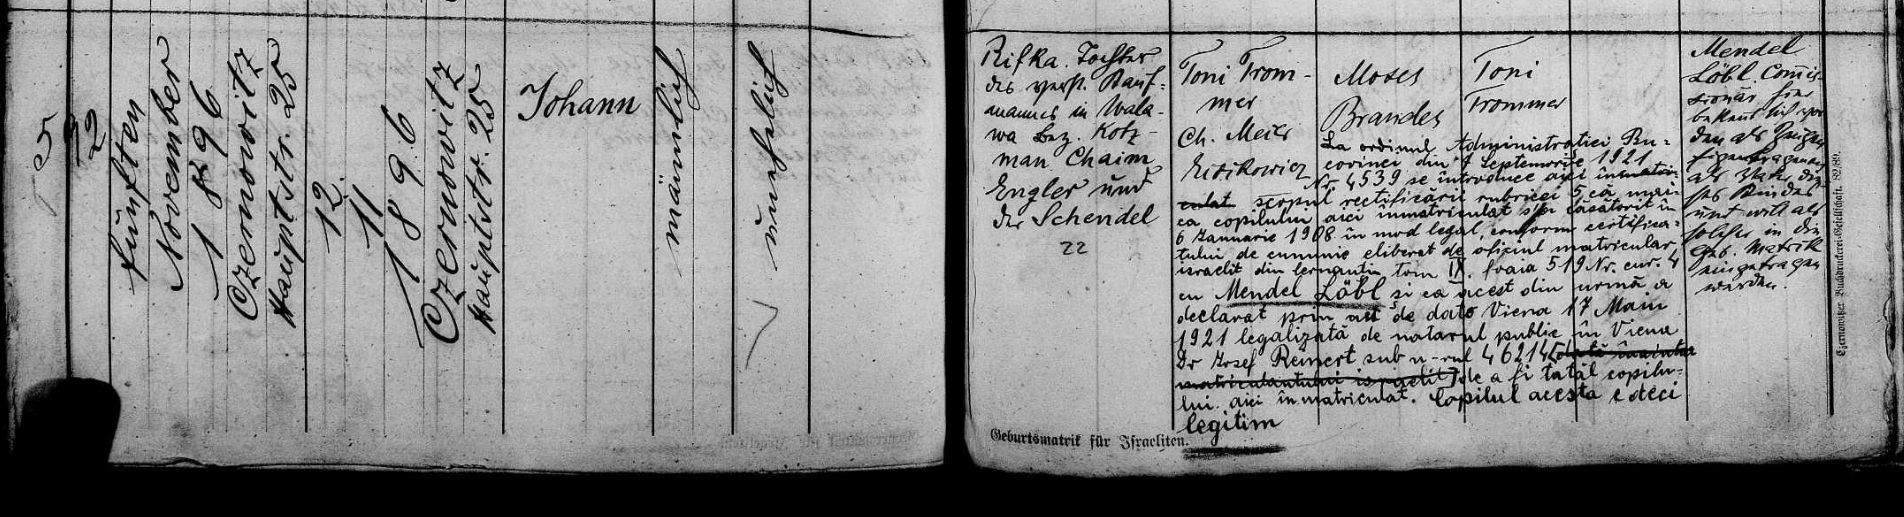 5
22
fünften
November
1896
Czernowitz
Hauptstr. 25
12.
11
1896
Czernowitz
Hauptstr. 25
Johann
männlich
unehelich
Rifka. Tochter
des verst. Kauf-
mannes in Wala-
wa Bez. Kotz-
man Chaim
Engler und
der Schendel
22
Toni Trom-
mer
Ch. Meier
Moses
Brandes
Toni
Trommer
La ordinul Administratiei Bu-
covinei din 7 Septemvrie 1921
Nr. 4539 se introduce aici înmatri-
culat scopul rectificării rubricei 5 că mai-
ca copilului aici inmatriculat s'a căsătorit în
6 Ianuarie 1908 în mod legal, conform certifica-
tului de cununie eliberat de oficiul matricular
israelit din Cernauti, tom IX. foaia 519 Nr. cur. 4
cu Mendel Löbl și că acest din urmă a
declarat prin act de dato Viena 17 Main
1921 legalizată de notarul public în Viena
Dr Josef Reinert sub n-rul 46214
de a fi tatăl copilu-
lui aici înmatriculat. Copilul acesta e deci
legitim
Mendel
Löbl Commis-
sionär hier
bekannt sich vor
den als Zeugen
als Vater die-
ses Kindes
und will als
solcher in die
Geb. Matrik
eingetragen
werden.
Geburtsmatrik für Israeliten.
Czernowitzer Buchdruckerei-Gesellschaft.